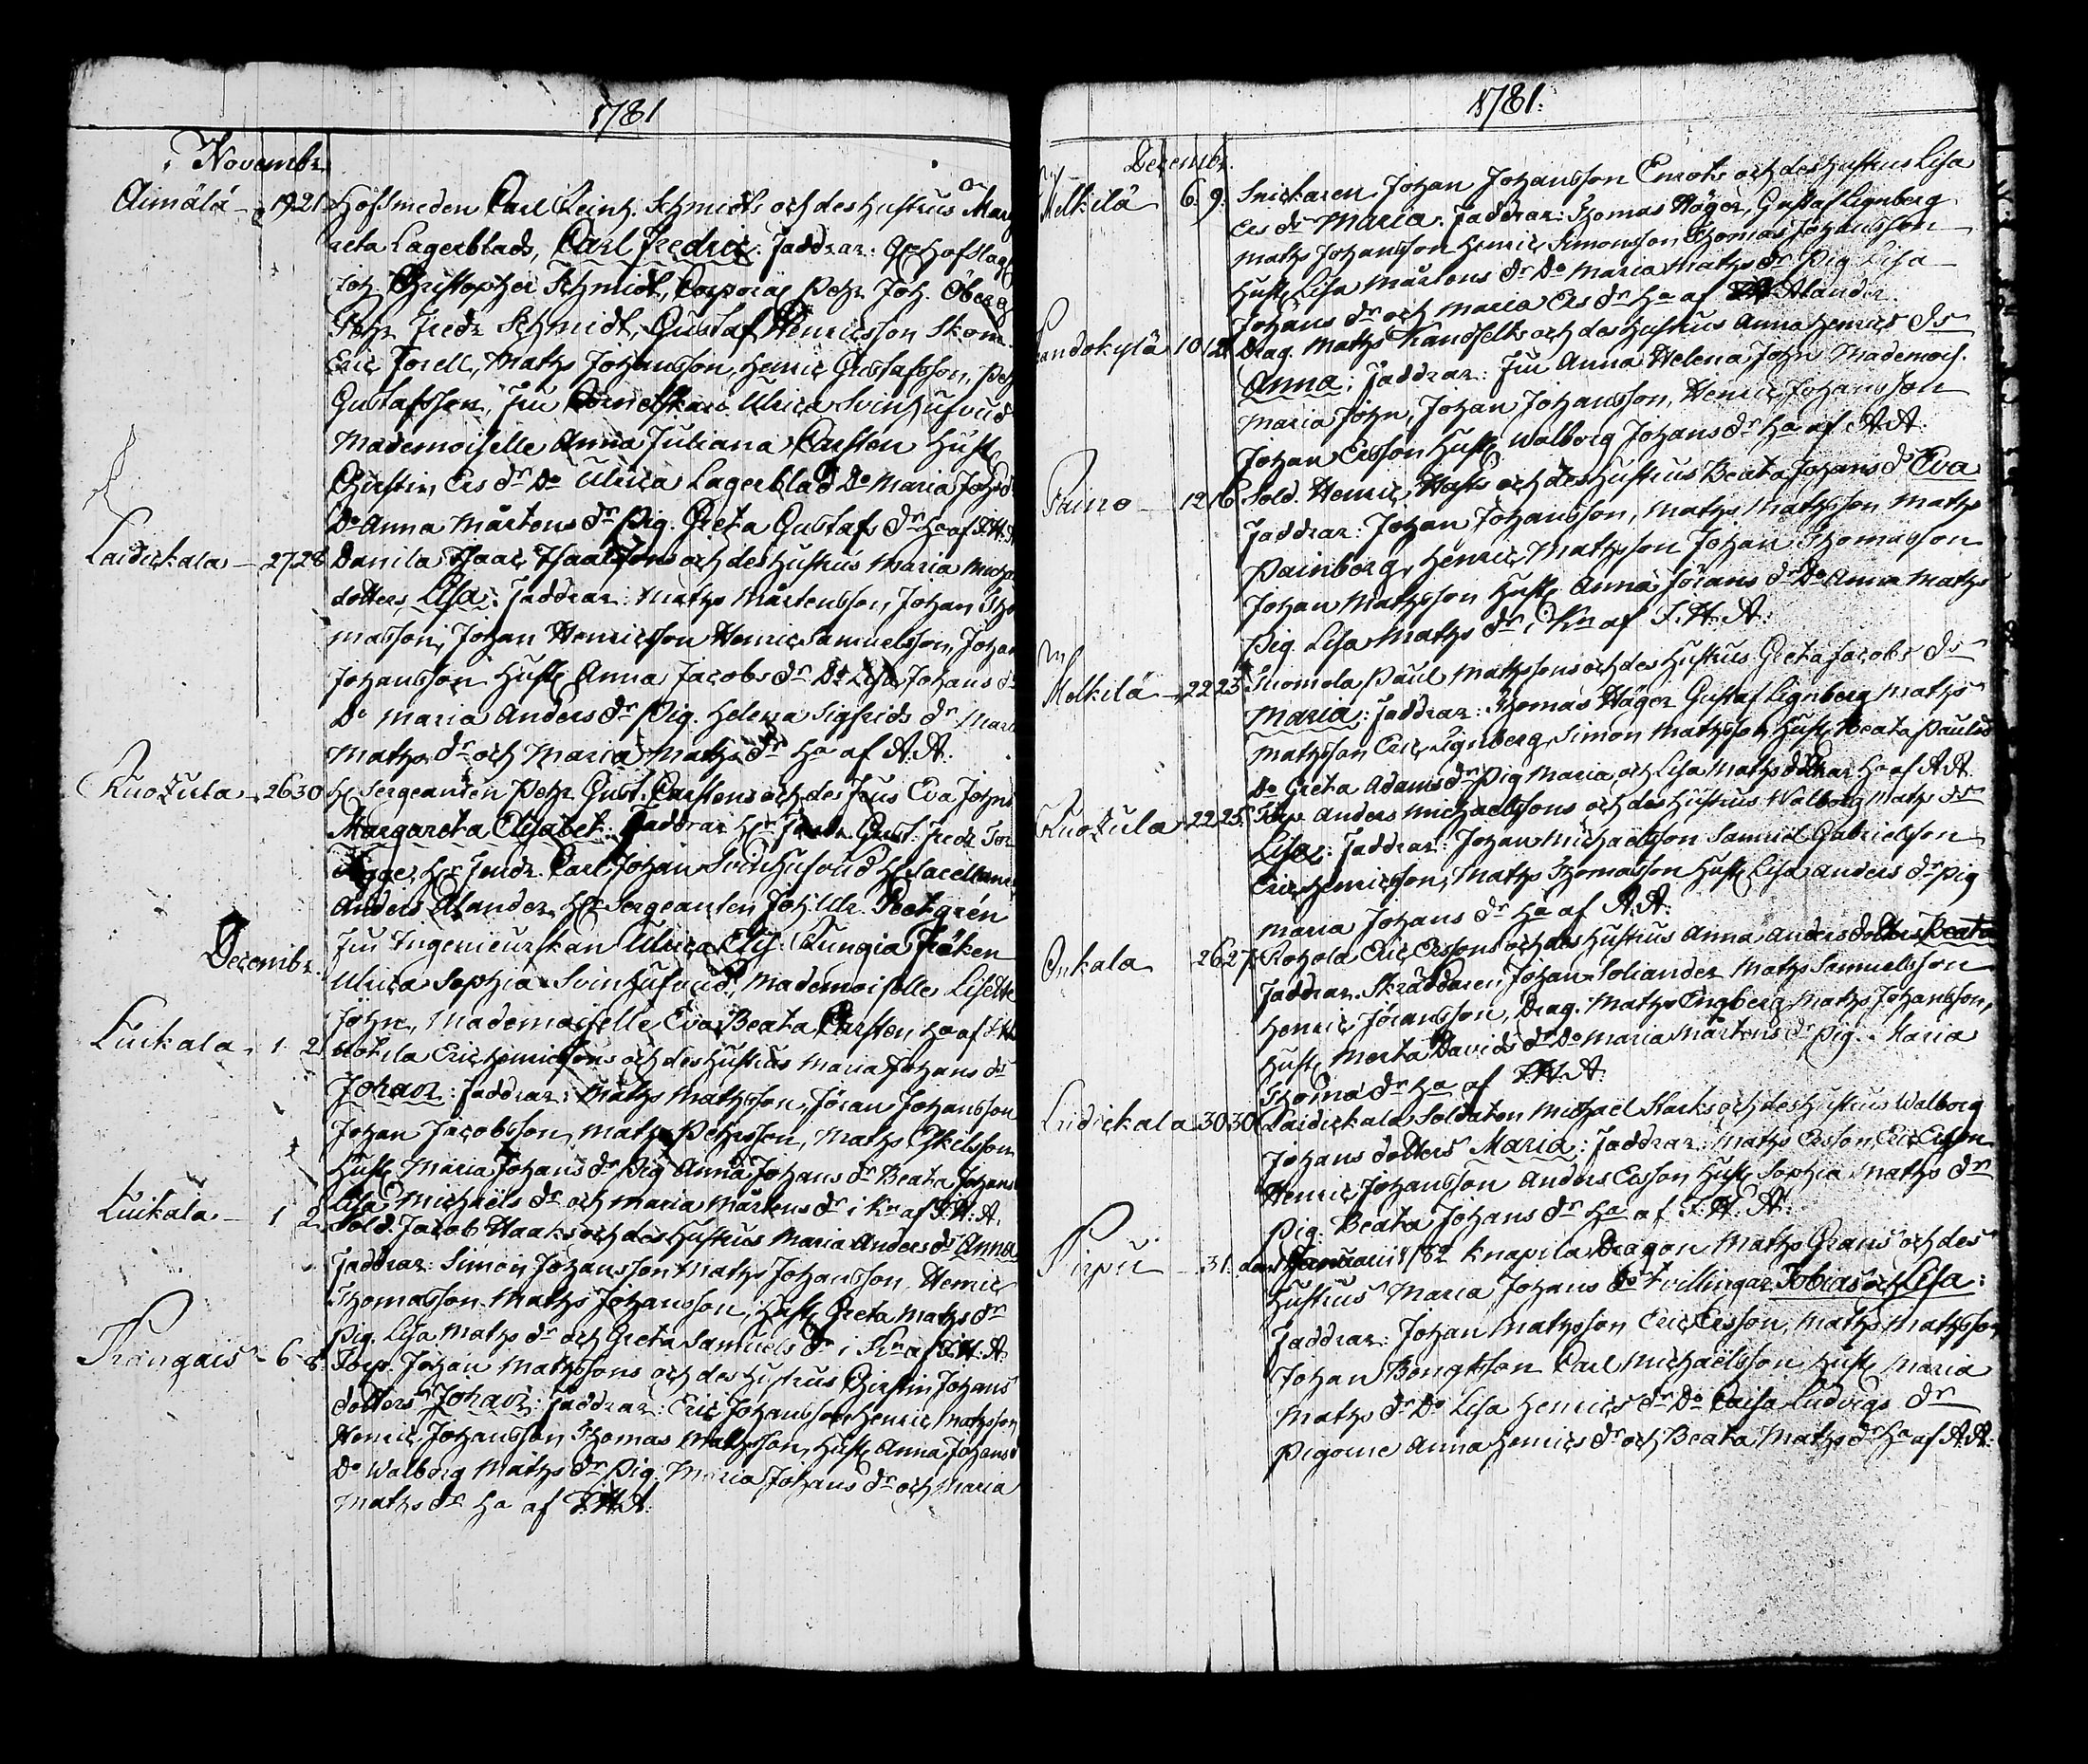 1781
Novembr.
Aimälä - 19 21 Hofsmeden Carl Reinh. Schmidts och des Hustrus Mar
reta Lagerblads, Carl Fredric. Faddrar: Hofslag
Joh. Christopher Schmidt, Corporal Petr Joh. Öberg
Petr Fredr Schmidt, Gustaf Henricsson Skom.
Eric Forell, Maths Johansson, Henric Gustafsson, Petr
Gustafsson, Fru Ulrica Svinhufvud
Mademoiselle Anna Juliana Carsten Hust.
Christin Ers dr Do Ulrica Lagerblad Do Maria Johs d
Do Anna Mårtens dr Pig. Greta Gustafs dr Ha af F.H.A
Laidickala - 27 28 Danila Isaac Isaacssons och des Hustrus Maria Michels
dotters, Lisa: Faddrar: Maths Mårtensson, Johan Tho
masson, Johan Henricsson Henric Samuelsson, Johan
Johansson Hust. Anna Jacobs dr Do Lisa Johans dr
Do Maria Anders dr Pig. Helena Sigfrids dr Maria
Maths dr och Maria Maths dr Ha af A.A.
Kuotula - 26 30 H. Sergeanten Petr Gust. Carstens och des Frus Eva Johns
Margareta Elisabet: Faddrar Hr Gust. Fredr
Hr Carl Johan Svinhufvud H. Sacellanen
Anders Alander, Hr Sergeanten Joh. Ulr. Peetgrén
Fru Ingenieurskan Ulrica Elis. Fröken
Decembr.
Ulrica Sophia Svinhufvud, Mademoiselle Lisette
John, Mademoiselle Eva Beata Carsten, Ha af F.H.A
Luikala - 1 2 Eric Henricssons och des Hustrus Maria Johans dr
Johan: Faddrar: Maths Mathsson, Jöran Johansson
Johan Jacobsson, Maths Pehrsson, Maths Eskelsson
Hust. Maria Johans dr Pig Anna Johans dr Beata Johans
Lisa Michaels dr och Maria Mårtens dr i Kn af F.H.A.
Luikala - 1 2 Sold. Jacob Haaks och des Hustrus Maria Anders dr Anna
Faddrar: Simon Johansson Maths Johansson, Henric
Thomasson Maths Johansson, Hust. Greta Maths dr
Pig. Lisa Maths dr och Greta Samuels dr i Kn af F.H.A.
Kångais - 6 8 Torp. Johan Mathssons och des Hustrus Christin Johans
dotters Johan: Faddrar: Eric Johansson Henric Mathsson
Henric Johansson, Thomas Mathsson, Hust. Anna Johans d
Do Walborg Maths dr Pig. Maria Johans dr och Maria
Maths dr Ha af F.H.A.
1781.
Decembr.
Melkilä 6 9 Snickaren Johan Johansson Enrots och des Hustrus Lisa
Ers dr Maria. Faddrar: Thomas Höger, Gustaf Lignberg
Maths Johansson Henric Simonsson Thomas Johansson
Hust. Lisa Mårtens dr Do Maria Maths dr Pig Lisa
Johans dr och Maria Ers dr Ha af Alander.
10 12 Drag. Maths Kandselts och des Hustrus Anna Henrics dr
Anna: Faddrar: Fru Anna Helena John Mademois.
Maria John, Johan Johansson, Henric Johansson
Johan Ersson Hust. Walborg Johans dr Ha af A.A.
12 16 Sold. Henric och des Hustrus Beata Johans d Eva
Faddrar: Johan Johansson, Maths Mathsson Maths
Painborg, Henric Mathsson Johan Thomasson
Johan Mathsson Hust. Anna Jörans dr Do Anna Maths
Pig. Lisa Maths dr i Kn af F.H.A:
Melkilä - 22 23 Suomela Paul Mathssons och des Hustrus Greta Jacobs dr
Maria: Faddrar: Thomas Höger Gustaf Lignberg Maths
Mathsson Eric Lignberg, Simon Mathsson Hust. Beata Pauls d
Do Greta Adams dr Pig Maria och Lisa Maths döttrar Ha af A.A.
Kuotula - 22 25 Torp Anders Michaelssons och des Hustrus Walborg Maths dr
Lisa: Faddrar: Johan Michaelsson Samuel Gabrielsson
Eric Henricsson, Maths Thomasson Hust. Lisa Anders dr Pig
Maria Johans dr Ha af A.A.
Onkala 26 27 Rohola Eric Erssons och des Hustrus Anna Anders dotters Beata
Faddrar. Skräddaren Johan Soliander Maths Samuelsson
Henric Jöransson, Drag. Maths Engberg Maths Johansson,
Hust. Marta Davids dr Do Maria Mårtens dr Pig. Maria
Thoma dr Ha af F.H.A.
Laidickala 30 30 Laidickala Soldaten Michael Starks och des Hustrus Walborg
Johans dotters Maria: Faddrar: Maths Ersson, Eric Ersson
Henric Johansson Anders Ersson Hust. Sophia Maths dr
Pig. Beata Johans dr Ha af F.H.A.
Pirpu - 31 den Januarii 1782 Knapila Dragon Maths Grans och des
Hustrus Maria Johans dr Tvillingar Tobias och Lisa:
Faddrar: Johan Mathsson Eric Ersson, Maths Mathsson
Johan Bengtsson Carl Michaelsson Hust. Maria
Maths dr Do Lisa Henrics dr Do Caisa Ludvigs dr
Pigorne Anna Henrics dr och Beata Maths dr Ha af A.A.